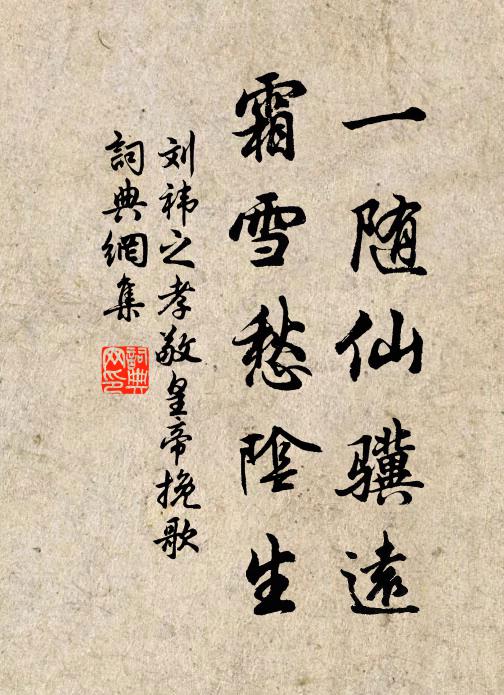 一随仙骥遠
霜雪愁陰生
刘祎之孝敬皇帝挽歌
詞典網集
詞典网印